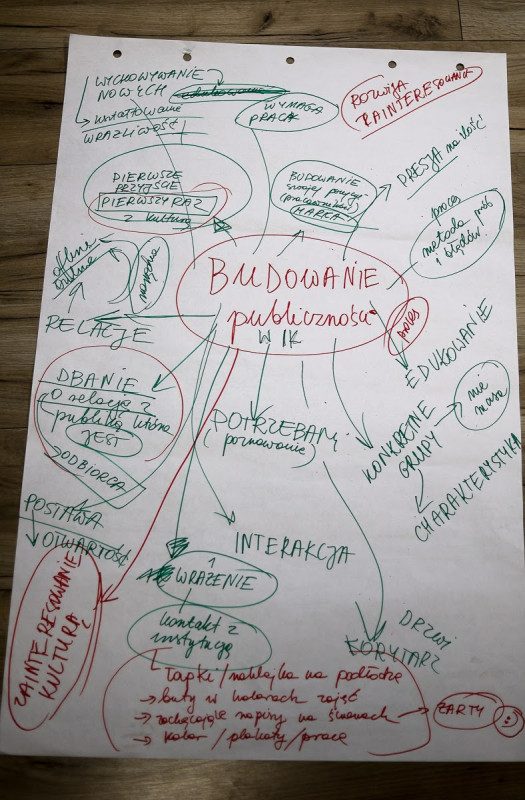 WYCHOWYWANIE
NOWYCH
kształtowanie
WRAŻLIWOŚĆ
WYMAGA
PRACY
ROZWIJA
ZAINTERESOWANIE
PIERWSZE
PRZYJŚCIE
PIERWSZY RAZ
z kulturą
BUDOWANIE
swojej pozycji
(pracowników)
MARKA
PRESJA na ilość!
proces
metoda prób
i błędów!
offline
online
narzędzia
RELACJE
BUDOWANIE
publiczności
W IK
proces
EDUKOWANIE
DBANIE
O relację z
publiką która
JEST
ODBIORCA
POTRZEBAM
(poznawanie)
KONKRETNE
GRUPY
nie
masa
CHARAKTERYSTYKA
POSTAWA
OTWARTOŚĆ
INTERAKCJA
1
WRAŻENIE
kontakt z
instytucją
ZAINTERESOWANIE
KULTURĄ
DRZWI
KORYTARZ
łapki/naklejka na podłodze
→ buty w kolorach zajęć
→ zachęcające napisy na ścianach → ŻARTY :)
→ kolor / plakaty / prace